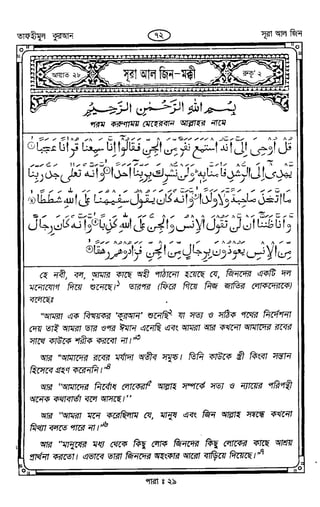 তাফহীমুল কুরআন ৭২ সূরা আল জিন
আয়াত ২৮ সূরা আল জিন-মক্কী রুকূ' ২
بِسْمِ اللهِ الرَّحْمٰنِ الرَّحِيْمِ
পরম করুণাময় মেহেরবান আল্লাহর নামে
قُلْ أُوحِيَ إِلَيَّ أَنَّهُ اسْتَمَعَ نَفَرٌ مِّنَ الْجِنِّ فَقَالُوا إِنَّا سَمِعْنَا قُرْآنًا عَجَبًا ①
يَهْدِي إِلَى الرُّشْدِ فَآمَنَّا بِهِ وَلَن نُّشْرِكَ بِرَبِّنَا أَحَدًا ② وَأَنَّهُ تَعَالَى جَدُّ رَبِّنَا
مَا اتَّخَذَ صَاحِبَةً وَلَا وَلَدًا ③ وَأَنَّهُ كَانَ يَقُولُ سَفِيهُنَا عَلَى اللهِ شَطَطًا ④
وَأَنَّا ظَنَنَّا أَن لَّن تَقُولَ الْإِنسُ وَالْجِنُّ عَلَى اللهِ كَذِبًا ⑤ وَأَنَّهُ كَانَ رِجَالٌ
مِّنَ الْإِنسِ يَعُوذُونَ بِرِجَالٍ مِّنَ الْجِنِّ فَزَادُوهُمْ رَهَقًا ⑥
হে নবী, বল, আমার কাছে অহী পাঠানো হয়েছে যে, জিনদের একটি দল
মনোযোগ দিয়ে শুনেছে।১ তারপর (ফিরে গিয়ে নিজ জাতির লোকদেরকে)
বলেছেঃ
"আমরা এক বিস্ময়কর 'কুরআন' শুনেছি২ যা সত্য ও সঠিক পথের নির্দেশনা
দেয় তাই আমরা তার ওপর ঈমান এনেছি এবং আমরা আর কখনো আমাদের রবের
সাথে কাউকে শরীক করবো না।"৩
আর "আমাদের রবের মর্যাদা অতীব সমুচ্চ। তিনি কাউকে স্ত্রী কিংবা সন্তান
হিসেবে গ্রহণ করেননি।"৪
আর "আমাদের নির্বোধ লোকেরা৫ আল্লাহ সম্পর্কে সত্য ও ন্যায়ের পরিপন্থী
অনেক কথাবার্তা বলে আসছে।"
আর "আমরা মনে করেছিলাম যে, মানুষ এবং জিন আল্লাহ সম্বন্ধে কখনো
মিথ্যা বলতে পারে না।"৬
আর "মানুষের মধ্য থেকে কিছু লোক জিনদের কিছু লোকের কাছে আশ্রয়
প্রার্থনা করতো। এভাবে তারা জিনদের অহংকার আরো বাড়িয়ে দিয়েছে।"৭
পারা ঃ ২৯